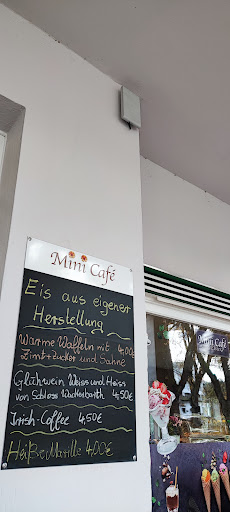 Mini Café
Eis aus eigener
Herstellung
Warme Waffeln mit 4,00€
Zimtzucker und Sahne
Glühwein Weiss und Heiss
von Schloss Wackerbarth 4,50€
Irish-Coffee 4,50€
Heiße Marille 4,00€
Mini Café